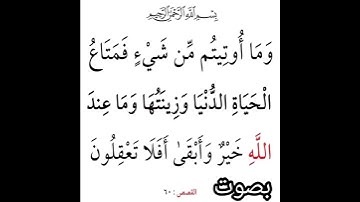 بِسْمِ اللَّهِ الرَّحْمَٰنِ الرَّحِيمِ
وَمَا أُوتِيتُم مِّن شَيْءٍ فَمَتَاعُ
الْحَيَاةِ الدُّنْيَا وَزِينَتُهَا وَمَا عِندَ
اللَّهِ خَيْرٌ وَأَبْقَىٰ أَفَلَا تَعْقِلُونَ
القصص : ٦٠
بصوت